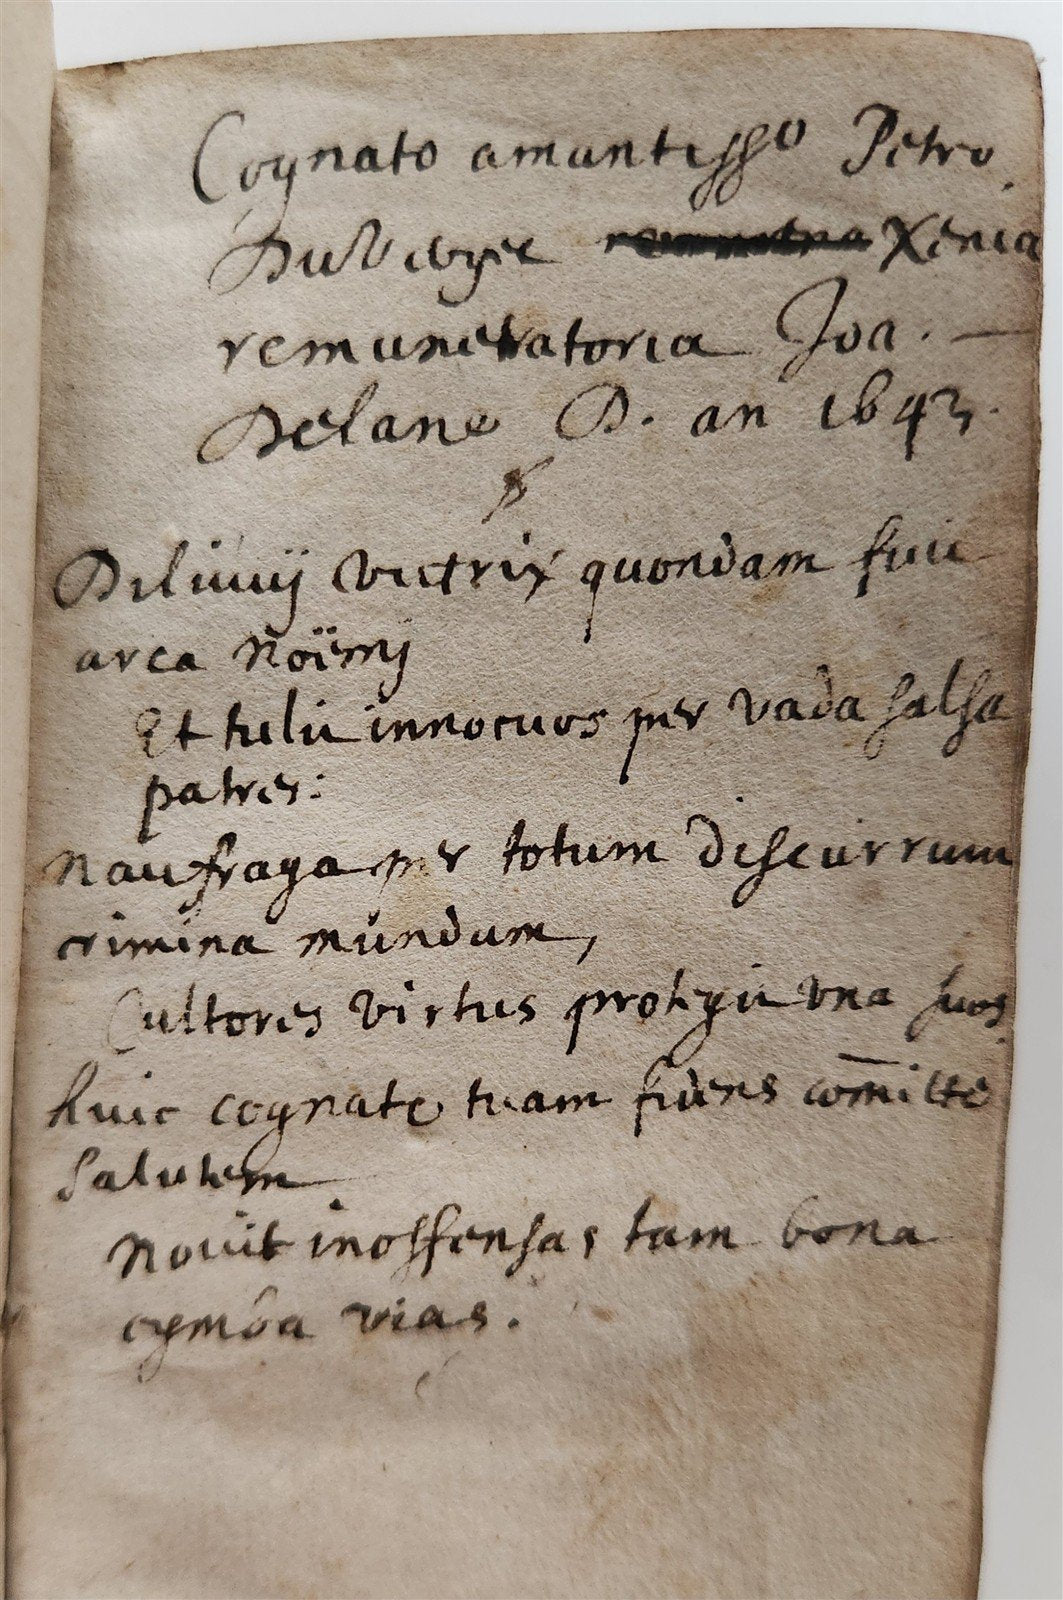 Cognato amantisso Petro
Xenia
remuneratoria Joa. —
Delane D. an 1643.
Diluuij victrix quondam fuit
arca Noëmj
Et tulit innocuos per vada salsa
patres:
Naufraga per totum discurrunt
crimina mundum,
Cultores virtus protegit vna suos
huic cognate tuam fidens com̄itte
salutem
Nouit inoffensas tam bona
cymba vias.